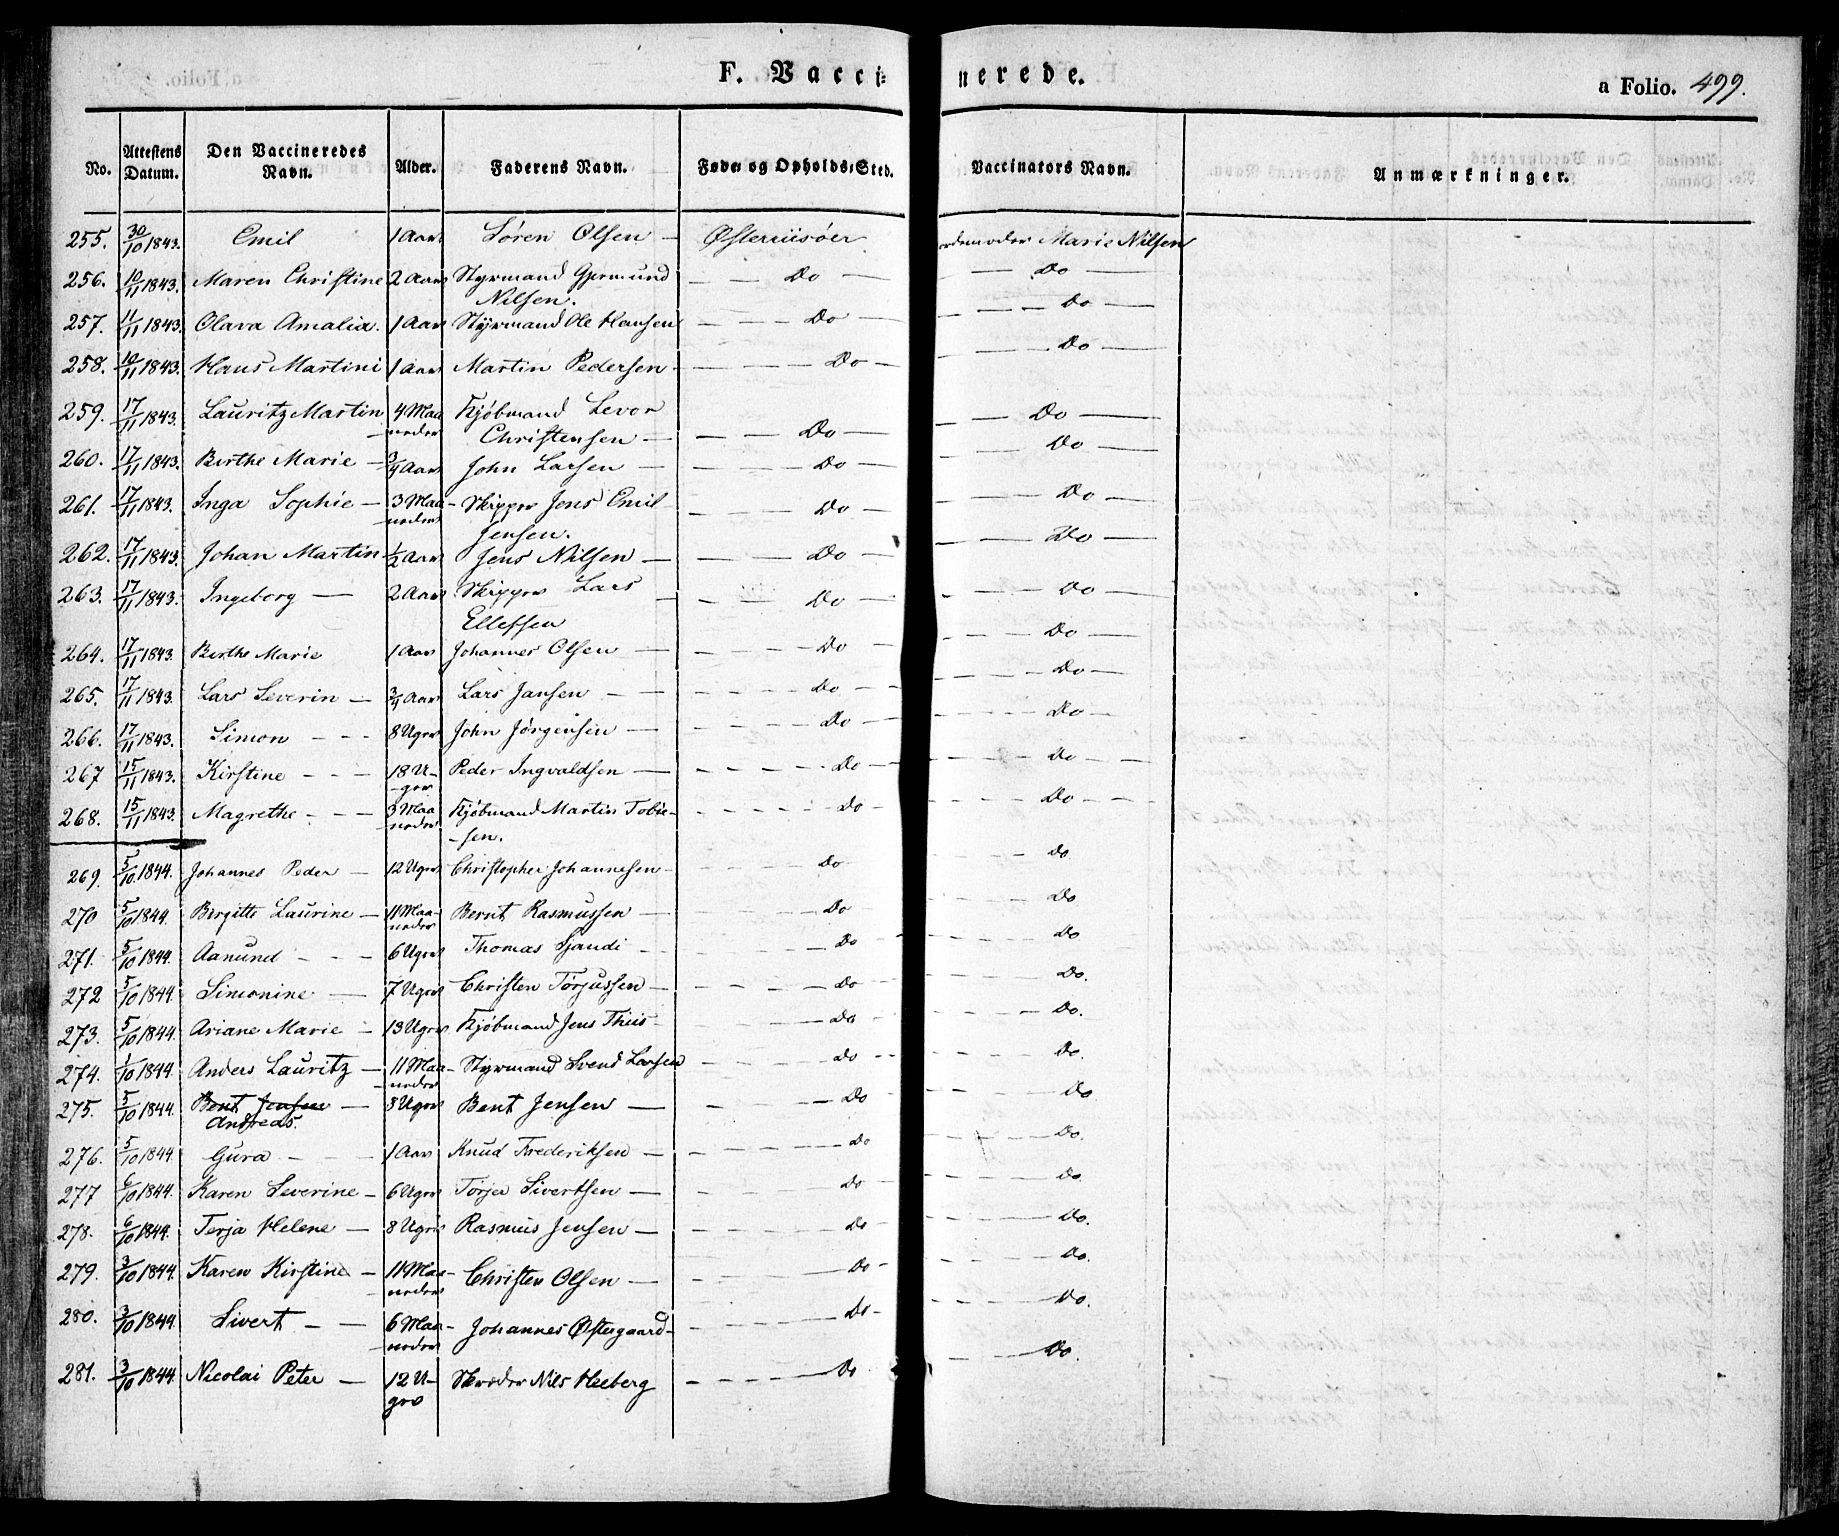 F. Vaccinerede.
a Folio. 499.
No. Attestens Datum. Den Vaccineredes Navn. Alder. Faderens Navn. Føde- og Opholds-Sted. Vaccinators Navn. Anmærkninger.
255. 30/10 1843. Emil 1 Aar Søren Olsen – Østeriisøer Marie Nilsen
256. 10/11 1843. Maren Christine 2 Aar Styrmand Gjermund Nilsen. – Do – – Do –
257. 11/11 1843. Olava Amalia. 1 Aar Styrmand Ole Hansen – Do – – Do –
258. 10/11 1843. Hans Martini 1 Aar Martin Pedersen – Do – – Do –
259. 17/11 1843. Lauritz Martin 4 Maaneder Kjøbmand Levor Christensen – Do – – Do –
260. 17/11 1843. Birthe Marie – 3/4 Aar John Larsen – – Do – – Do
261. 17/11 1843. Inga Sophie – 3 Maaneder Skipper Jens Emil Jensen. – Do – – Do –
262. 17/11 1843. Johan Martin 1/2 Aar Jens Nilsen – – Do – – Do –
263. 17/11 1843. Ingeborg – 2 Aar Skipper Lars Ellefsen – Do – – Do –
264. 17/11 1843 Birthe Marie 1 Aar Johannes Olsen – – Do – – Do –
265. 17/11 1843. Lars Severin – 3/4 Aar Lars Jansen – – Do – – Do –
266. 17/11 1843. Simon – 8 Uger John Jørgensen – – Do – – Do –
267 15/11 1843. Kirstine – 18 Uger Peder Ingvaldsen – – Do – – Do –
268. 15/11 1843. Magrethe – 3 Maaneder Kjøbmand Martin Tobiesen. – Do – – Do –
269. 5/10. 1844. Johannes Peder – 12 Uger Christopher Johannesen – Do – do
270 5/10 1844. Birgitte Laurine – 11 Maaneder Bernt Rasmussen – – Do – Do
271. 5/10 1844. Aanund – 6 Uger Thomas – Do – – Do
272 5/10 1844. Simonine – 7 Uger Christen Torjussen – – Do – – Do.
273. 5/10 1844. Ariane Marie – 13 Uger Kjøbmand Jens Thiis – – Do – – Do.
274. /10 1844. Anders Lauritz – 11 Maaneder Styrmand Svend Larsen – do – – Do.
275. 5/10 1844. Bent Jensen Andreas. – 8 Uger Bent Jensen – – Do – Do
276. 5/10 1844. Gura – 1 Aar Knud Frederiksen – – Do – Do.
277 6/10 1844. Karen Severine – 6 Uger Torjer Sivertsen – – Do – do
278. 6/10 1844. Terja Helene – 8 Uger Rasmus Jensen – – Do – Do.
279. 3/10 1844. Karen Kirstine – 11 Maaneder Christen Olsen – – Do – Do.
280. 3/10 1844 Sivert – 6 Maaneder Johannes Østergaard – Do – – Do.
281. 3/10 1844 Nicolai Peter – 12 Uger Skræder Nils Heeberg – Do – Do.